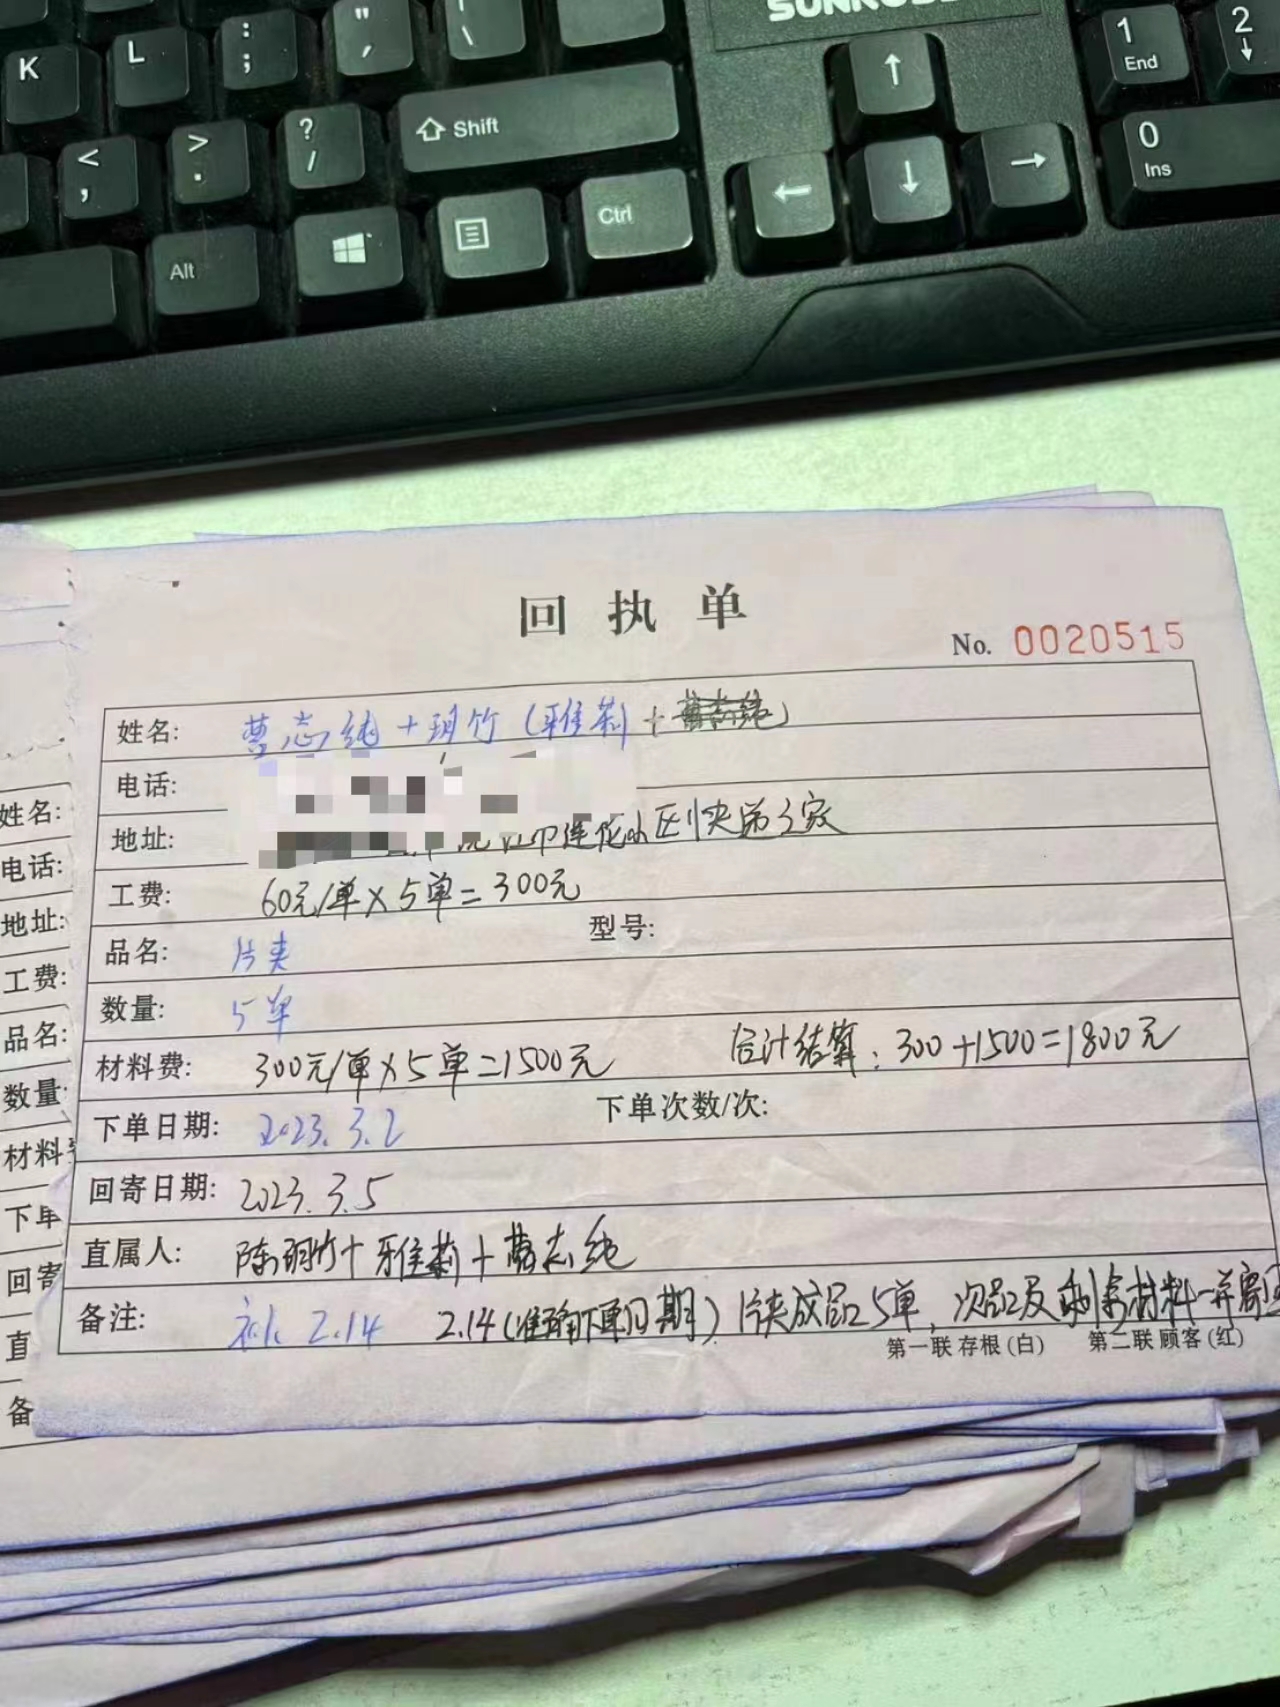 SUNROSE
K L : ; " ' | \ 1 End 2 ↓
< , > . ? / Shift ↑ 0 Ins
Alt Ctrl ← ↓ →
回执单
No. 0020515
姓名: 曹志纯+玥竹(雅莉+曹志纯)
电话:
地址: 莲花小区 第3家
工费: 60元/单×5单=300元
品名: 片夹 型号:
数量: 5单
材料费: 300元/单×5单=1500元 合计结算:300+1500=1800元
下单日期: 2023.3.2 下单次数/次:
回寄日期: 2023.3.5
直属人: 陈玥竹+雅莉+曹志纯
备注: 补 2.14 2.14(准确下单日期)片夹成品5单,次品及剩余材料一并寄回
第一联 存根(白) 第二联 顾客(红)
姓名:
电话:
地址:
工费:
品名:
数量:
材料
下单
回寄
直
备